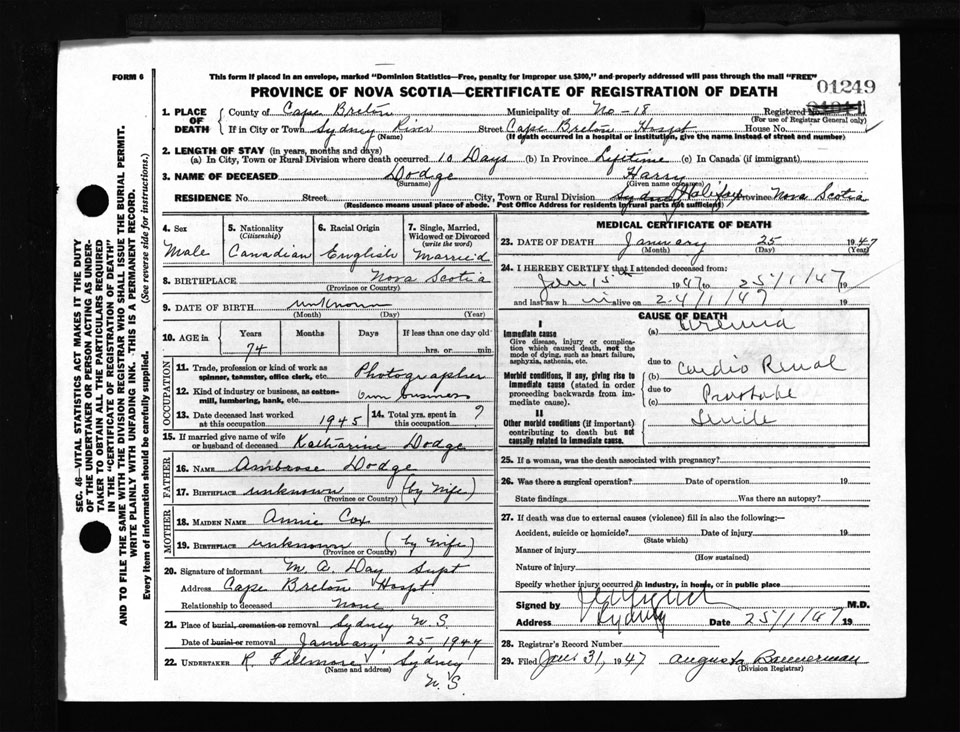 FORM 6
This form if placed in an envelope, marked "Dominion Statistics—Free, penalty for improper use $300," and properly addressed will pass through the mail "FREE"
PROVINCE OF NOVA SCOTIA—CERTIFICATE OF REGISTRATION OF DEATH
01249
1. PLACE OF DEATH
County of Cape Breton Municipality of No-18 Registered No.
(For use of Registrar General only)
If in City or Town Sydney River Street Cape Breton Hospt House No.
(Name) (If death occurred in a hospital or institution, give the name instead of street and number)
2. LENGTH OF STAY (in years, months and days)
(a) In City, Town or Rural Division where death occurred 10 Days (b) In Province Lifetime (c) In Canada (if immigrant)
3. NAME OF DECEASED Dodge Harry
(Surname) (Given name or names)
RESIDENCE No. Street City, Town or Rural Division Sydney Halifax Province Nova Scotia
(Residence means usual place of abode. Post Office Address for residents in rural parts not sufficient)
4. Sex
Male
5. Nationality
(Citizenship)
Canadian
6. Racial Origin
English
7. Single, Married, Widowed or Divorced
(write the word)
Married
8. BIRTHPLACE Nova Scotia
(Province or Country)
9. DATE OF BIRTH unknown
(Month) (Day) (Year)
10. AGE in
Years Months Days If less than one day old
74 hrs. or min.
OCCUPATION
11. Trade, profession or kind of work as spinner, teamster, office clerk, etc. Photographer
12. Kind of industry or business, as cotton-mill, lumbering, bank, etc. own business
13. Date deceased last worked at this occupation 1945
14. Total yrs. spent in this occupation ?
15. If married give name of wife or husband of deceased Katharine Dodge
FATHER
16. NAME Ambrose Dodge
17. BIRTHPLACE unknown (by Wife)
(Province or Country)
MOTHER
18. MAIDEN NAME Annie Cox
19. BIRTHPLACE unknown (by Wife)
(Province or Country)
20. Signature of informant M. A. Day Supt
Address Cape Breton Hospt.
Relationship to deceased None
21. Place of burial, cremation or removal Sydney N.S.
Date of burial or removal January, 25, 1947
22. UNDERTAKER R. Fillmore, Sydney
(Name and address)
N.S.
MEDICAL CERTIFICATE OF DEATH
23. DATE OF DEATH January 25 1947
(Month) (Day) (Year)
24. I HEREBY CERTIFY that I attended deceased from:
Jan 15th 1947 to 25/1/47 19
and last saw h im alive on 24/1/47 19
CAUSE OF DEATH
I
Immediate cause
Give disease, injury or complication which caused death, not the mode of dying, such as heart failure, asphyxia, asthenia, etc.
(a) Uremia
due to
Morbid conditions, if any, giving rise to immediate cause (stated in order proceeding backwards from immediate cause).
(b) Cardio Renal
due to
(c) Prostate
II
Other morbid conditions (if important) contributing to death but not causally related to immediate cause.
Senile
25. If a woman, was the death associated with pregnancy?
26. Was there a surgical operation? Date of operation 19
State findings Was there an autopsy?
27. If death was due to external causes (violence) fill in also the following:—
Accident, suicide or homicide? Date of injury 19
(State which)
Manner of injury
(How sustained)
Nature of injury
Specify whether injury occurred in industry, in home, or in public place
Signed by M.D.
Address Sydney Date 25/1/47 19
28. Registrar's Record Number
29. Filed Jan 31, 1947 Augusta Bannerman
(Division Registrar)
SEC. 46—VITAL STATISTICS ACT MAKES IT THE DUTY
OF THE UNDERTAKER OR PERSON ACTING AS UNDER-
TAKER TO OBTAIN ALL THE PARTICULARS REQUIRED
IN THE "CERTIFICATE OF REGISTRATION OF DEATH"
AND TO FILE THE SAME WITH THE DIVISION REGISTRAR WHO SHALL ISSUE THE BURIAL PERMIT.
WRITE PLAINLY WITH UNFADING INK. THIS IS A PERMANENT RECORD.
Every item of information should be carefully supplied. (See reverse side for instructions.)